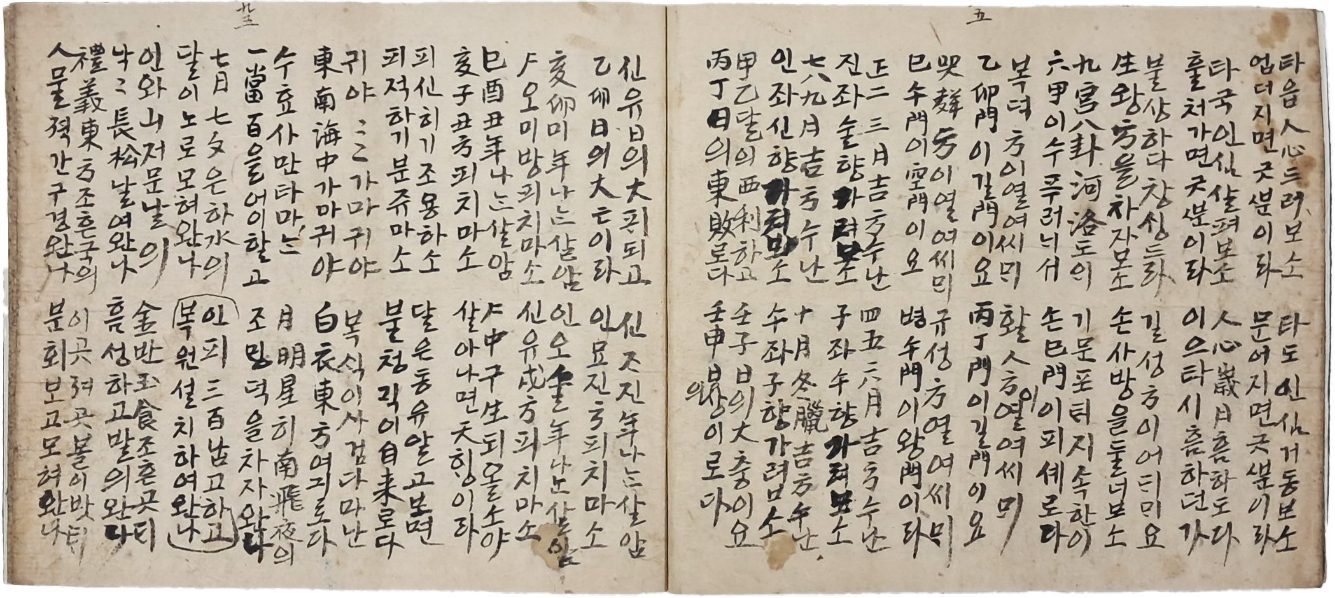 五
타읍人心드러보소 타도인심거동보소
업더지면굿분이라 문어지면굿분이라
타국인심살펴보소 人心歲月흠하도다
흘처가면굿분이라 이으타시흠하던가
불상하다창싱드라 길성方이어듸미요
生왕方을차자보소 손사방을둘너보소
九宮八卦河洛도의 기문포터지속한이
六甲이수푸러늬서 손巳門이피셰로다
복덕方이열여씨믜 활人方이열여씨믜
乙卯門이길門이요 丙丁門이길門이요
哭聲方이열여씨믜 규성方열여씨믜
巳午門이空門이요 병午門이왕門이라
正二三月吉方수난 四五六月吉方수난
진좌술향가려보소 子좌午향가려보소
七八九月吉方수난 十月冬臘吉方수난
인좌신향가려보소 수좌子향가려보소
甲乙달의西利하고 壬子日의大충이요
丙丁日의東敗로다 壬申日의상이로다
신유日의大피되고 신즈진年나는살암
乙卯日의大亡이라 인묘진方피치마소
亥卯미年나는살암 인오술年나는살암
ᄉᆞ오미방피치마소 신유戌方피치마소
巳酉丑年나는살암 ᄉᆞ中구生되올소야
亥子丑方피치마소 살아나면天힝이라
피신히기조용하소 달은동유알고보면
피적하기분쥬마소 불청긱이自来로다
귀야〻〻가마귀야 복식이사검다마난
東南海中가마귀야 白衣東方여긔로다
수효사만타마는 月明星히南飛夜의
一當百을어이할고 조밍덕을차자완나
七月七夕은하水의 인피三百남고하고
달이노로모혀완나 복원셜치하여완나
인와山저문날의 金반玉食조흔곳듸
낙〻長松날여완나 흠성하고말의완다
禮義東方조흔국의 이곳져곳볼이밧틔
人물젹간구경완나 분회보고모혀완나